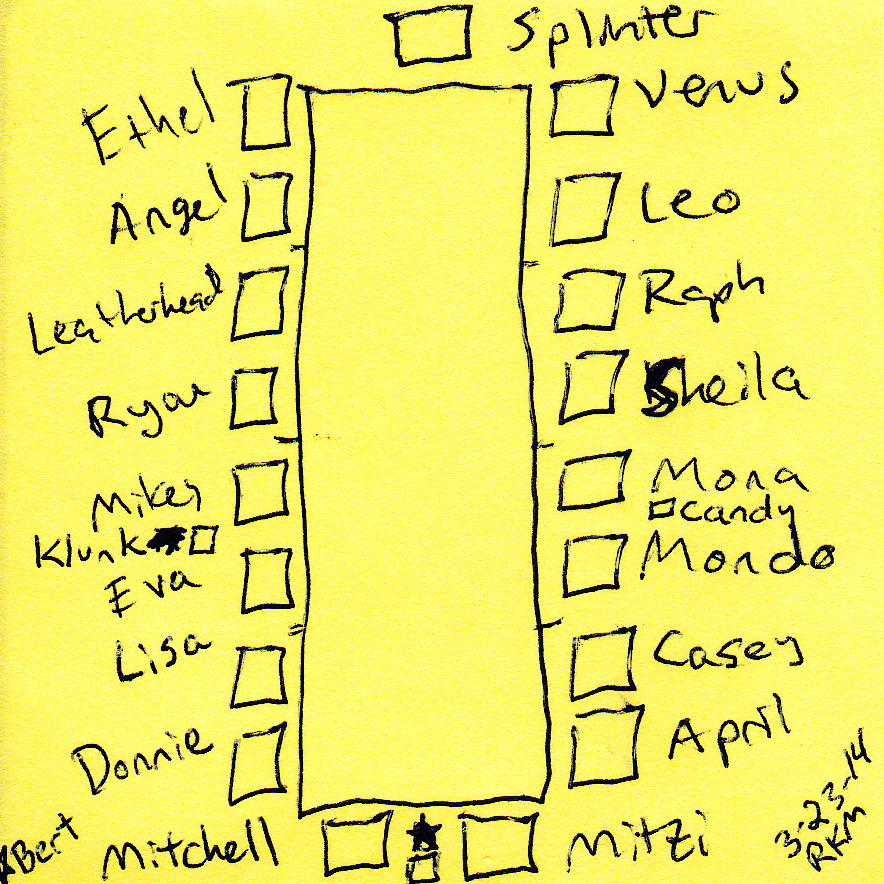 Splinter
Ethel
Venus
Angel
Leo
Leatherhead
Raph
Ryan
Sheila
Mikey
Mona
Klunk
Candy
Eva
Mondo
Lisa
Casey
Donnie
April
Bert
Mitchell
Mitzi
3-23-14
RKM